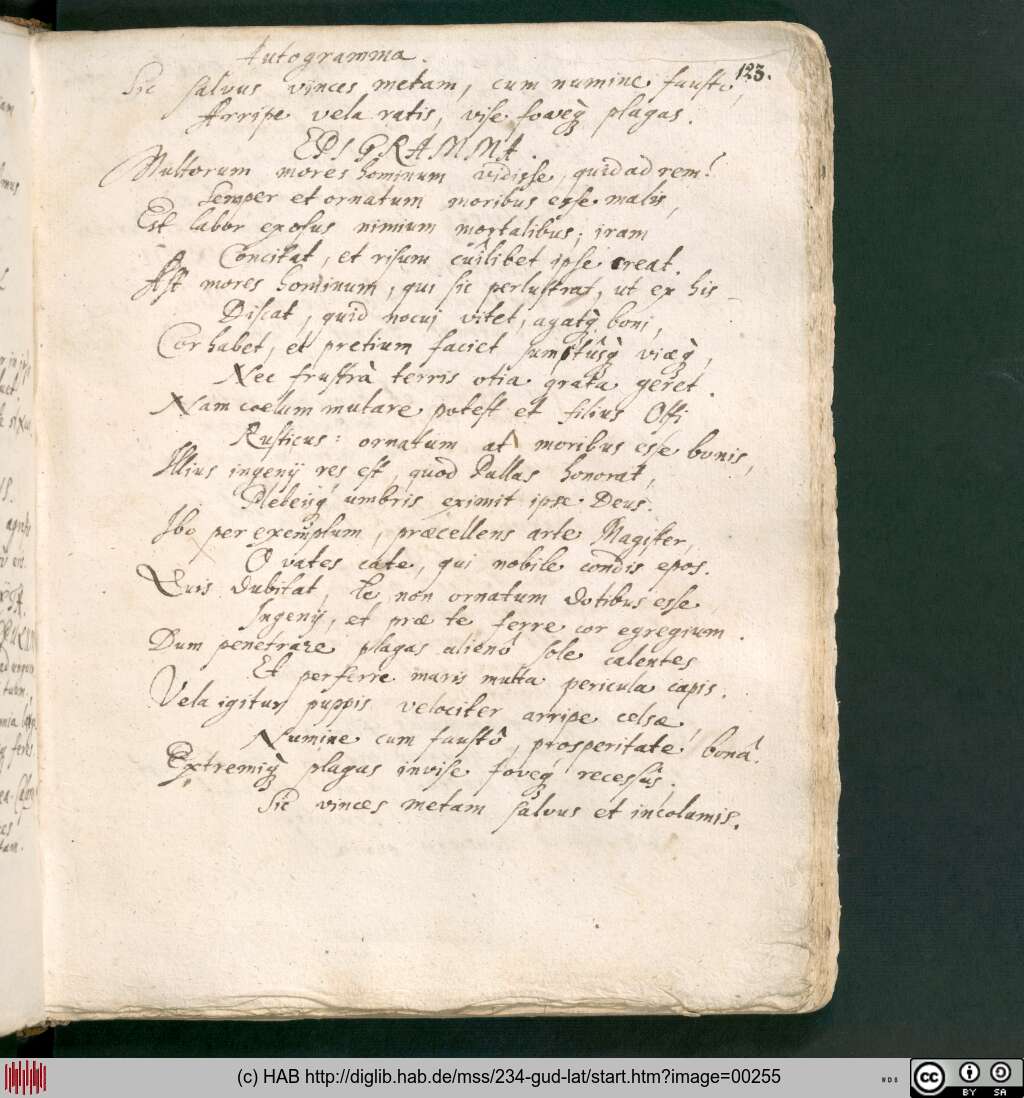 Autogramma.
123.
Sic salvus vinces metam, cum numine faustô,
Arripe vela ratis, vise foveq̀ plagas.
EPIGRAMMA.
Multorum mores hominum vidisse, quid ad rem?
Semper et ornatum moribus esse malis,
Est labor exosus nimium mortalibus; iram
Concitat, et risum cuilibet ipse creat.
Ast mores hominum, qui sic perlustrat, ut ex his
Discat, quid nocui vitet, agatq̀ boni,
Cor habet, et pretium faciet sumtûsq̀ viæq̀,
Nec frustrà terris otia grata geret.
Nam coelum mutare potest et filius Ofsi
Rusticus: ornatum at moribus esse bonis,
Illius ingenij res est, quod Pallas honorat,
Plebeijq́ umbris eximit ipse Deus.
Ibo per exemplum, præcellens arte Magister,
O vates cate, qui nobile condis epos.
Quis dubitat, te non ornatum dotibus esse
Ingenij, et præ te ferre cor egregium.
Dum penetrare plagas alienô sole calentes
Et perferre maris multa pericula capis.
Vela igitur puppis velociter arripe celsæ
Numine cum faustô, prosperitate bonâ.
Extremiq̀ plagas invise foveq́ recessûs.
Sic vinces metam salvus et incolumis.
(c) HAB http://diglib.hab.de/mss/234-gud-lat/start.htm?image=00255
WDB
cc BY SA